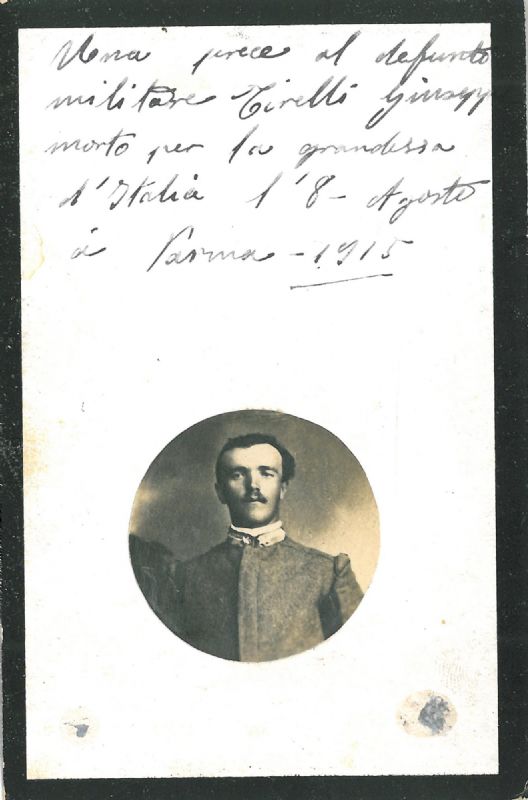 Una prece al defunto
militare Tirelli Giusepp
morto per la grandessa
d'Italia l'8 - Agosto
à Parma - 1915